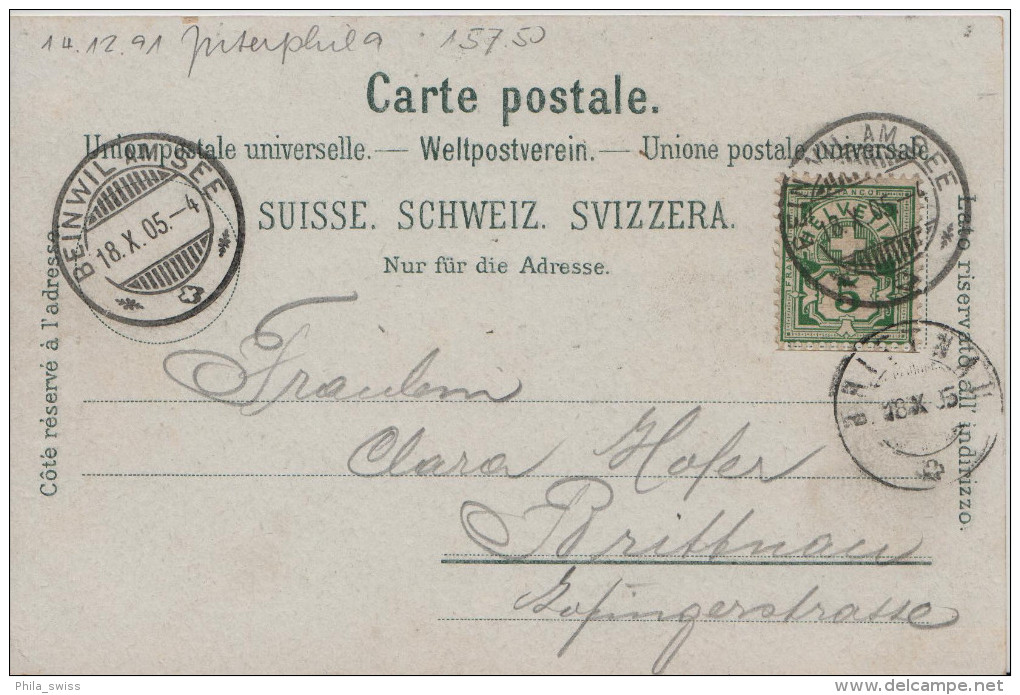 14.12.91 Interphila 157.50
Carte postale.
Union postale universelle. — Weltpostverein. — Unione postale universale
SUISSE. SCHWEIZ. SVIZZERA.
Nur für die Adresse.
BEINWIL AM SEE
18.X.05.-4
AM SEE
FRANCO
HELVETIA
5
18 X 05
Côté réservé à l'adresse
Lato riservato all' indirizzo.
Fräulein
Clara Hofer
Brittnau
Zofingerstrasse
Phila_swiss
delcampe.net